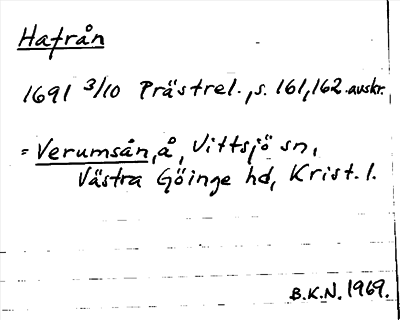 Hafrån
1691 3/10 Prästrel., s. 161, 162. avskr.
= Verumsån, å, Vittsjö sn,
Västra Göinge hd, Krist. l.
B.K.N. 1969.